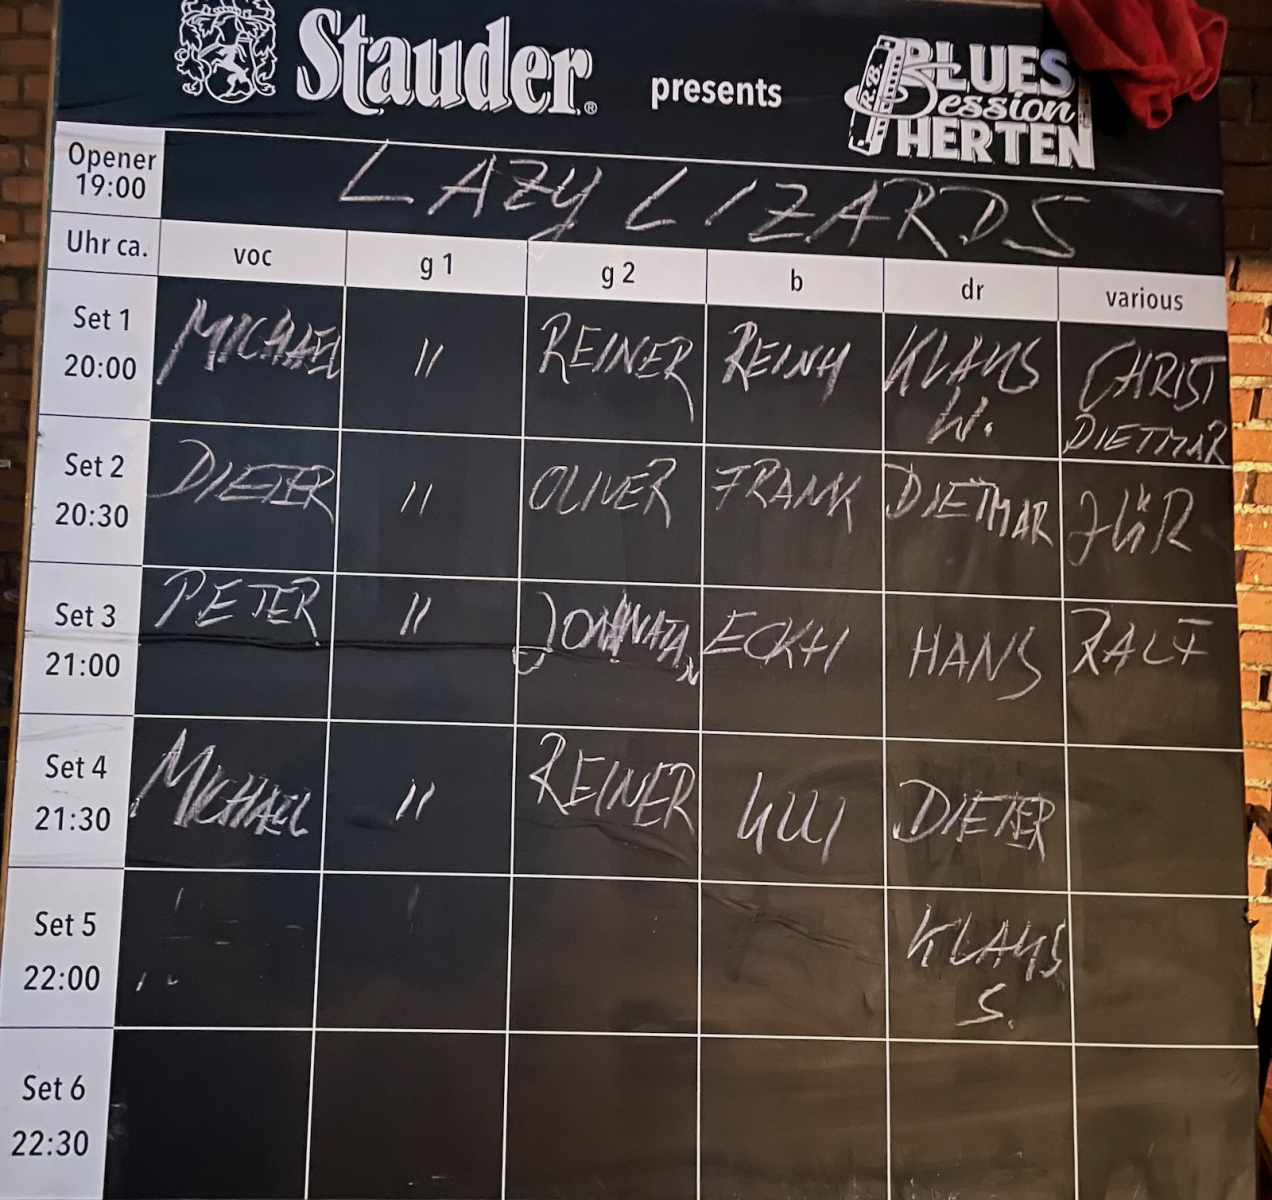 Stauder®
presents
R.B.
BLUES
Session
HERTEN
Opener
19:00
LAZY LIZARDS
Uhr ca. voc g 1 g 2 b dr various
Set 1
20:00
MICHAEL " REINER REINH KLAUS
W.
CHRIST
DIETMAR
Set 2
20:30
DIETER " OLIVER FRANK DIETMAR JÜR
Set 3
21:00
PETER " ECKH HANS RALF
Set 4
21:30
MICHAEL " REINER ULLI DIETER
Set 5
22:00
KLAUS
S.
Set 6
22:30